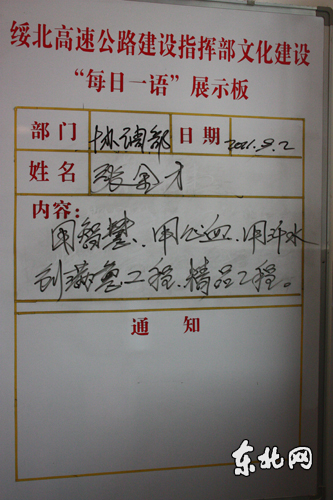 绥北高速公路建设指挥部文化建设
“每日一语”展示板
部门 协调部 日期 2011.9.2
姓名 张金才
内容:
用智慧、用心血、用汗水
创造典型工程、精品工程。
通知
东北网